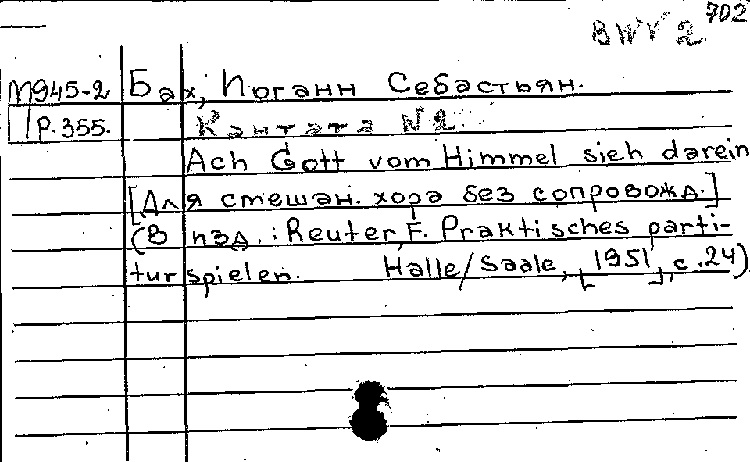 BWV 2 702
М945-2 Бах, Иоганн Себастьян.
Р.355. Кантата №2.
Ach Gott vom Himmel sieh darein
[Для смешан. хора без сопровожд.]
(В изд.: Reuter, F. Praktisches parti-
turspielen. Halle/Saale, [1951], с.24)